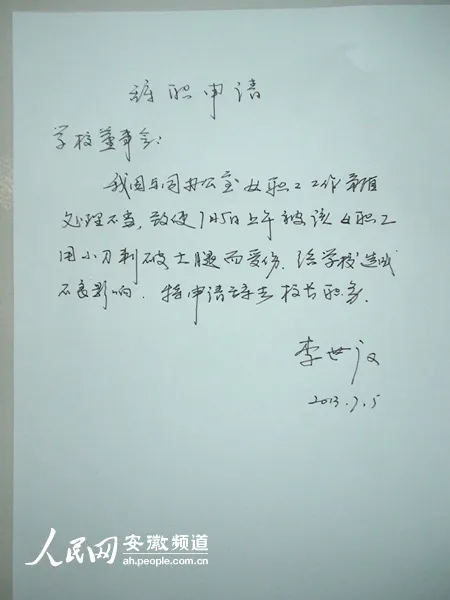 辞职申请
学校董事会:
我因与同办公室女职工工作矛盾
处理不当，致使7月5日上午被该女职工
用小刀刺破大腿而受伤.给学校造成
不良影响.特申请辞去校长职务.
李世
2013.7.5
人民网 安徽频道
ah.people.com.cn